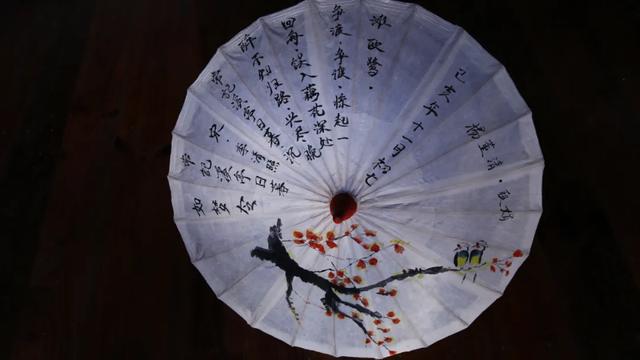 如梦令
常记溪亭日暮
宋·李清照
常记溪亭日暮·沉
醉不知归路·兴尽晚
回舟·误入藕花深处
争渡·争渡·惊起一
滩鸥鹭·
己亥年十一月初七